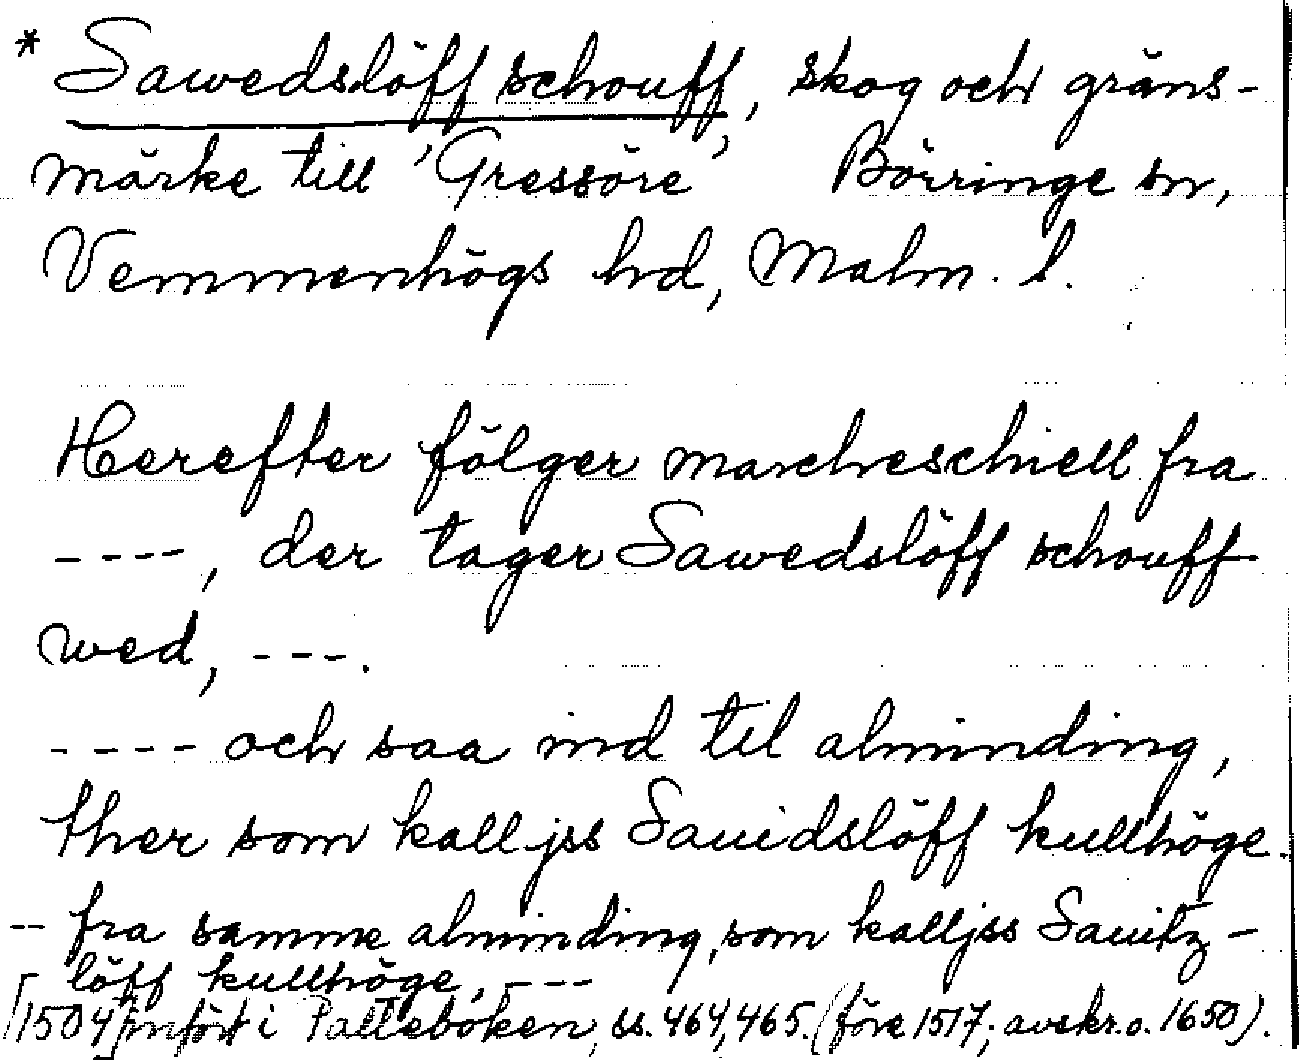 * Sawedslöff schouff, skog och gräns-
märke till 'Gressöre' Börringe sn,
Vemmenhögs hd, Malm. l.
Herefter fölger marcheschiell fra
----, der tager Sawedslöff schouff
wed, ---.
---- och saa ind til alminding,
ther som kalljss Sauidslöff kullhöge.
-- fra samme alminding, som kalljss Sauitz-
löff kullhöge, ---
[1504] infört i Palteboken, ss. 464, 465. (före 1517; avskr. o. 1650).